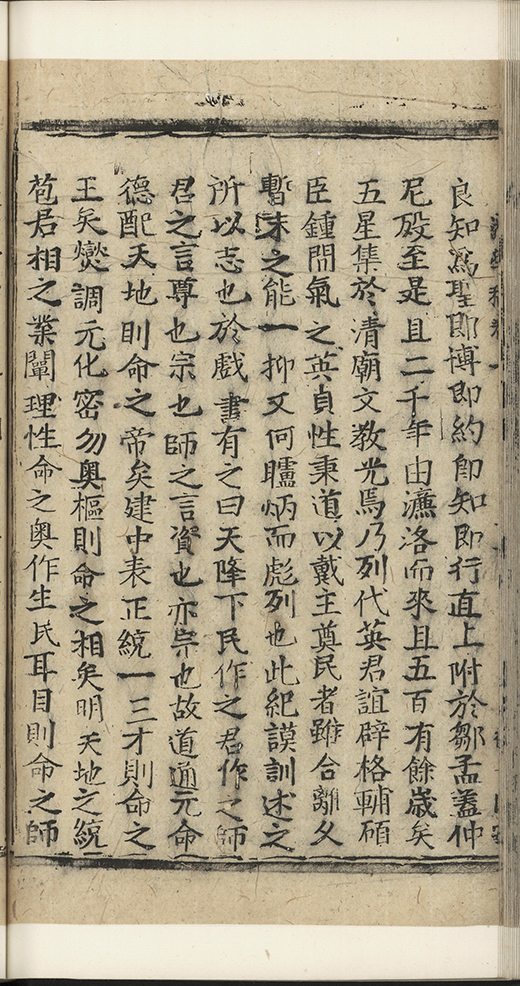 良知爲聖即博即約即知即行直上附於鄒孟蓋仲
尼殁至是且二千年由濂洛而來且五百有餘歲矣
五星集於清廟文教光焉乃列代英君誼辟格輔碩
臣鍾閒氣之英貞性秉道以戴主奠民者雖合離夂
暫末之能一抑又何臚炳而彪列也此紀謨訓述之
所以志也於戲書有之曰天降下民作之君作之師
君之言尊也宗也師之言資也亦宗也故道通元命
德配天地則命之帝矣建中表正統一三才則命之
王矣爕調元化密勿奥樞則命之相矣明天地之統
苞君相之業闡理性命之奥作生民耳目則命之師